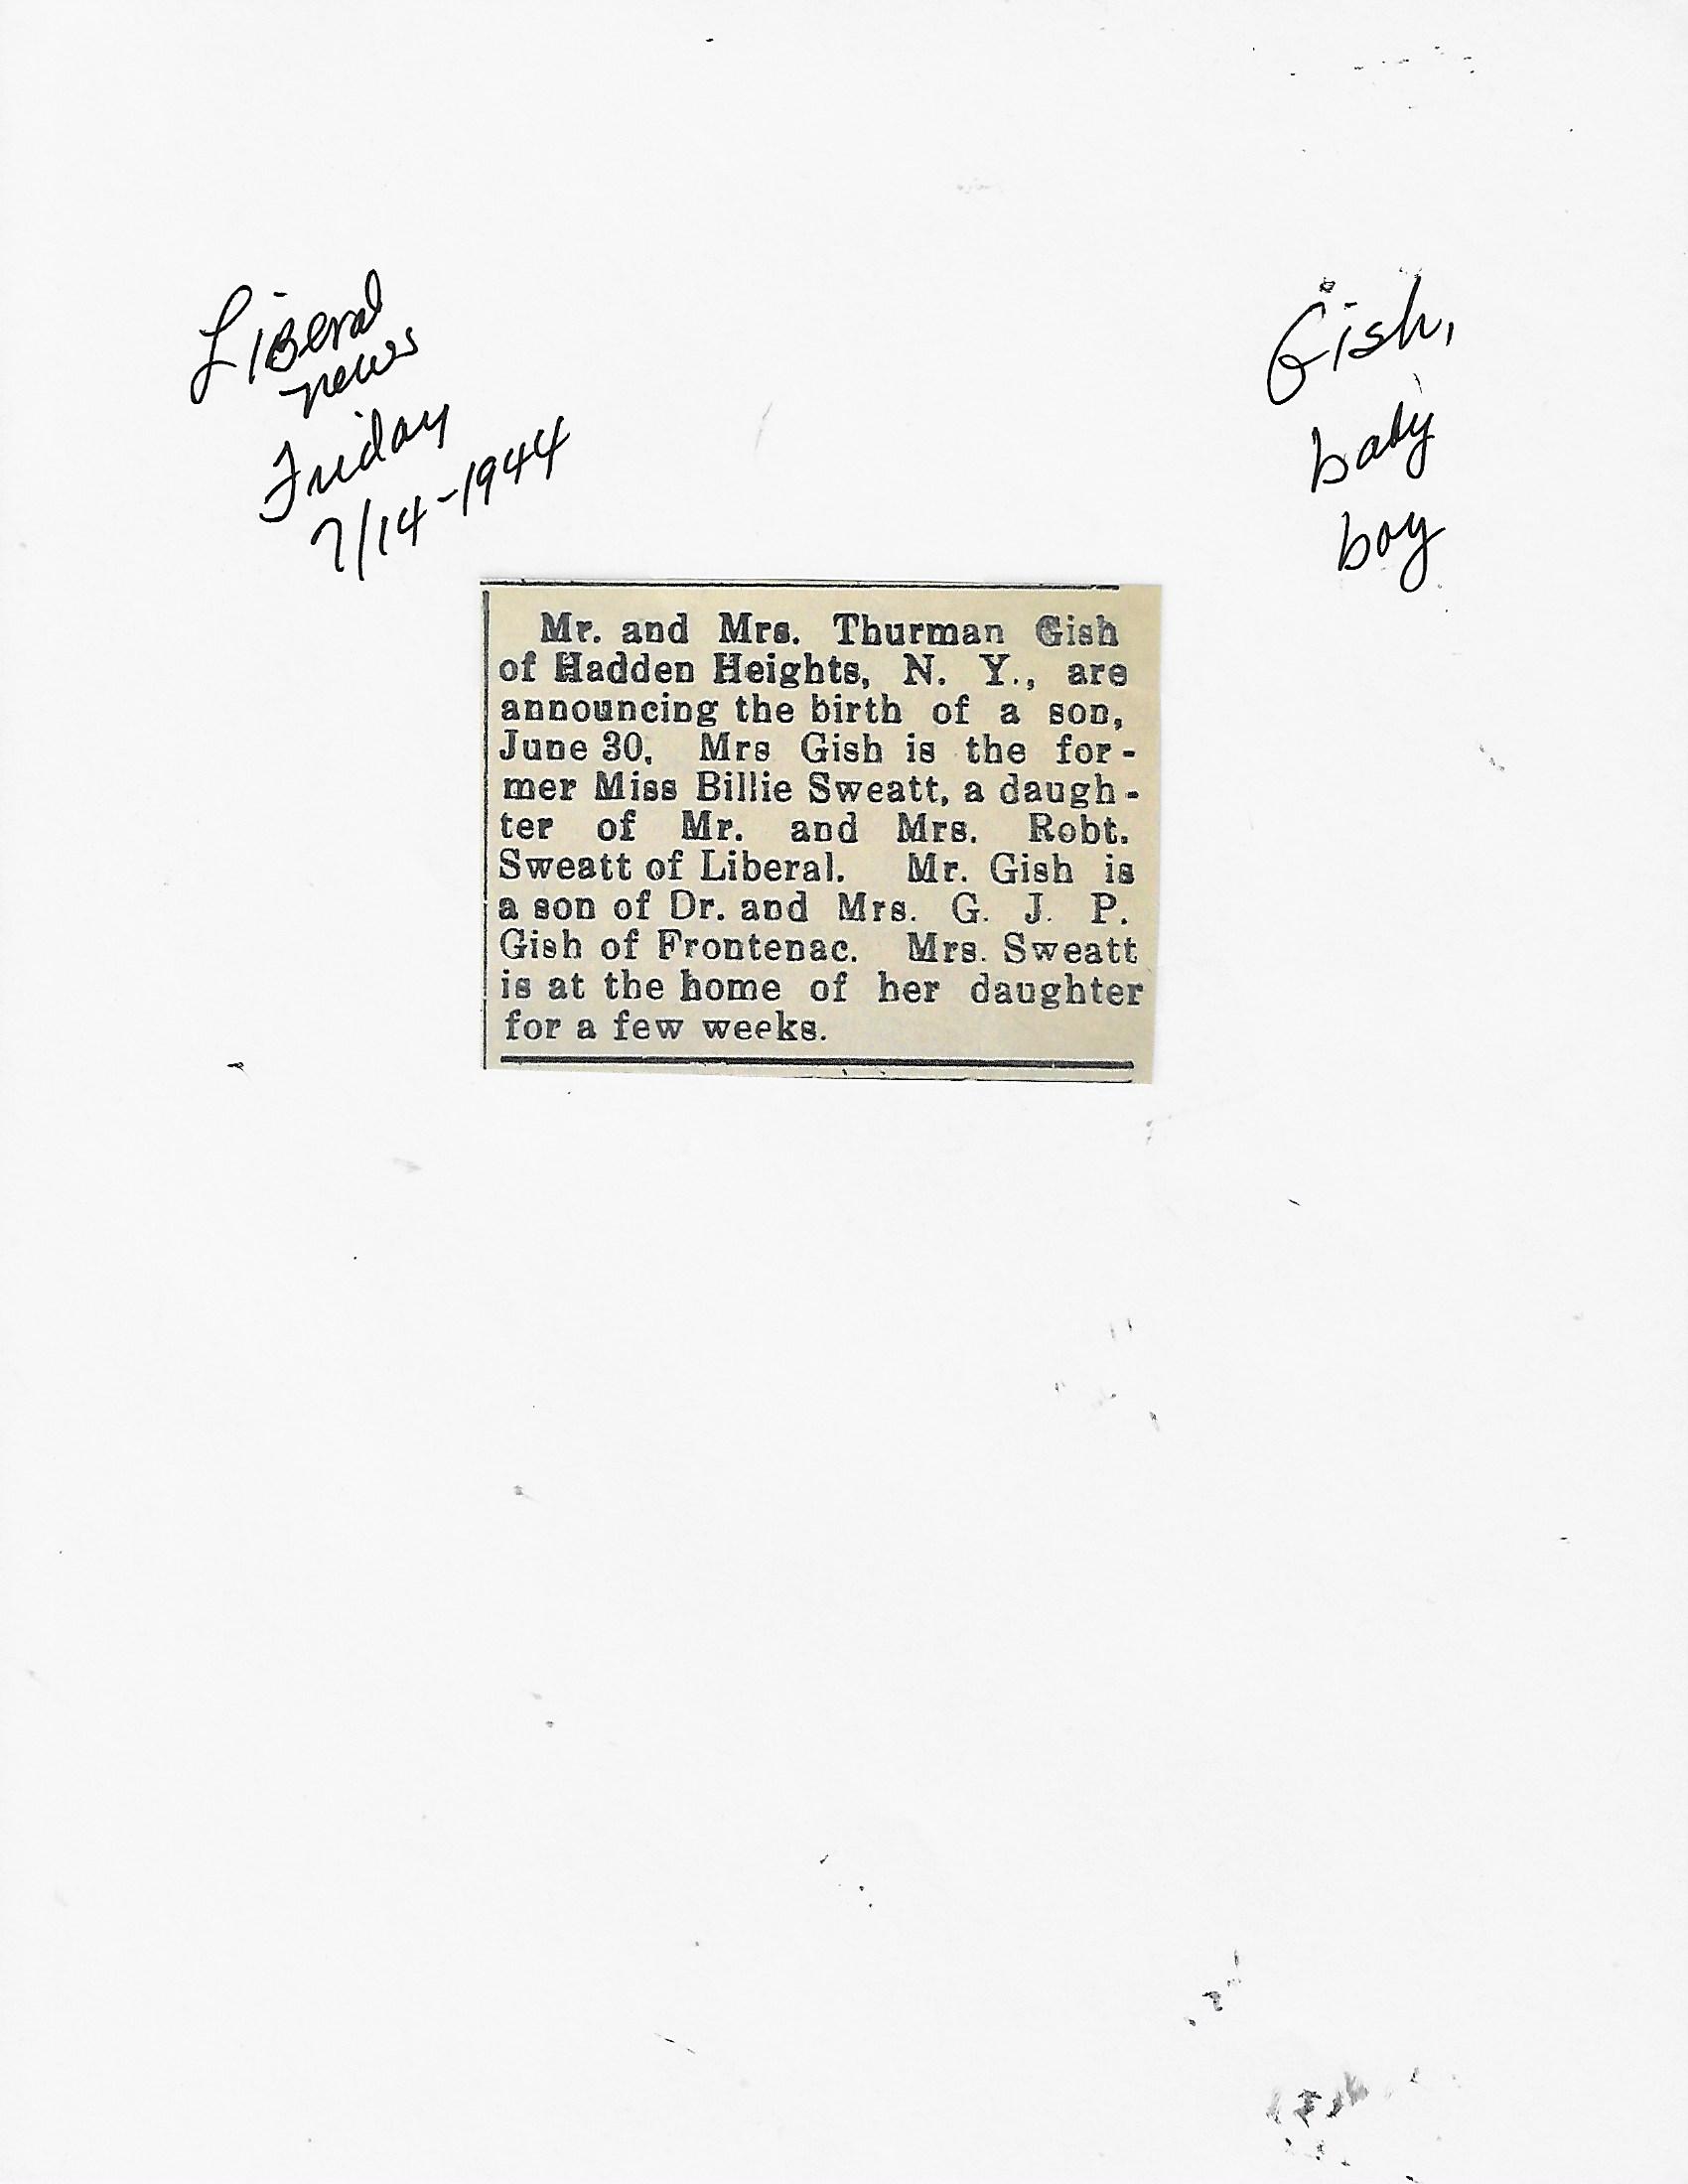 Liberal
news
Friday
7/14-1944
Gish,
baby
boy
Mr. and Mrs. Thurman Gish
of Hadden Heights, N. Y., are
announcing the birth of a son,
June 30. Mrs Gish is the for-
mer Miss Billie Sweatt, a daugh-
ter of Mr. and Mrs. Robt.
Sweatt of Liberal. Mr. Gish is
a son of Dr. and Mrs. G. J. P.
Gish of Frontenac. Mrs. Sweatt
is at the home of her daughter
for a few weeks.